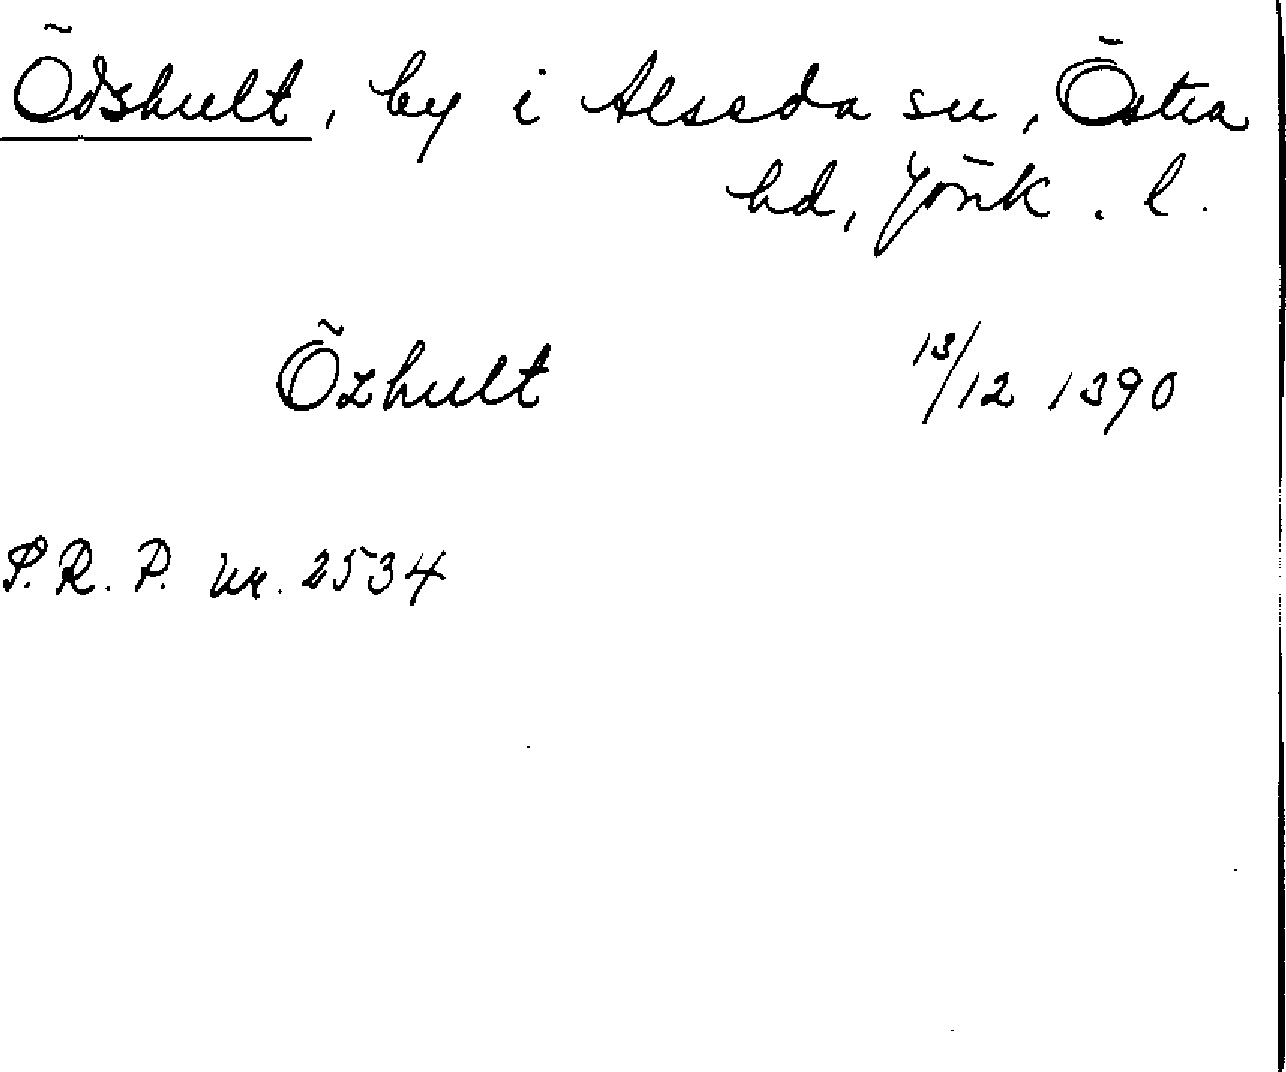 Ödshult, by i Alseda sn, Östra
hd, Jönk. l.
Özhult 13/12 1390
S.R.P. nr. 2534